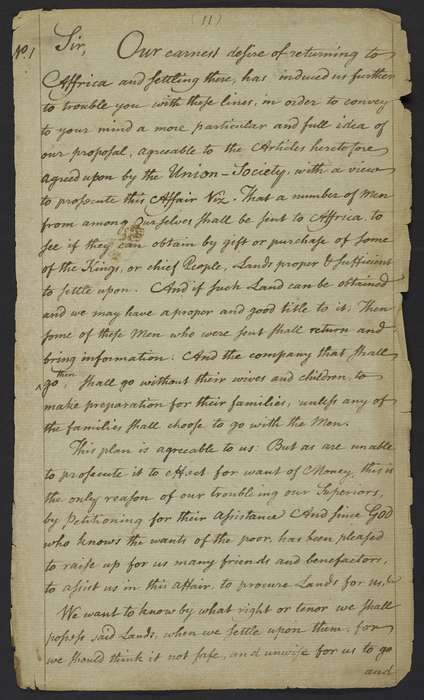 (11)
No. 1
Sir, Our earnest desire of returning to
Affrica and settling there, has induced us further
to trouble you with these lines, in order to convey
to your mind a more particular and full idea of
our proposal, agreeable to the Articles heretofore
agreed upon by the Union-Society, with a view
to prosecute this Affair Viz. That a number of Men
from among Ourselves shall be sent to Affrica, to
see if they can obtain by gift or purchase of some
of the Kings, or chief People, Lands proper & sufficient
to settle upon. And if such Land can be obtained
and we may have a proper and good title to it. Then
some of these Men who were sent shall return and
bring information. And the company that shall
then
go, shall go without their wives and children, to
make preparation for their families, unless any of
the families shall choose to go with the Men.
This plan is agreeable to us: But as are unable
to prosecute it to effect for want of Money, this is
the only reason of our troubling our Superiors,
by Petitioning for their assistance. And since GOD
who knows the wants of the poor, has been pleased
to raise up for us many friends and benefactors,
to assist us in this affair, to procure Lands for us, &
We want to know by what right or tenor we shall
possess said Lands, when we settle upon them, for
we should think it not safe, and unwise for us to go
and